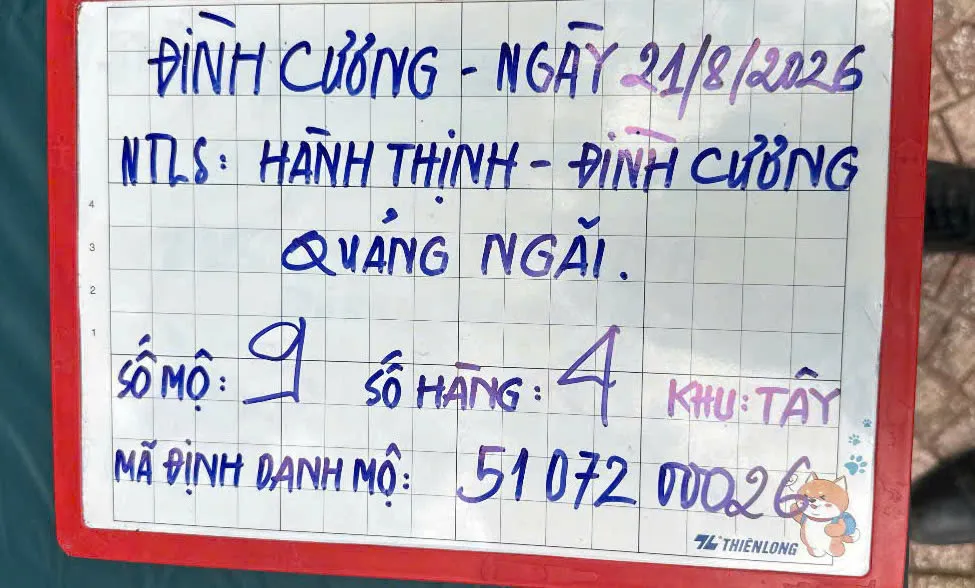 ĐÌNH CƯƠNG - NGÀY 21/8/2026
NTLS: HÀNH THỊNH - ĐÌNH CƯƠNG
QUẢNG NGÃI.
4
3
2
1
SỐ MỘ: 9 SỐ HÀNG: 4 KHU: TÂY
MÃ ĐỊNH DANH MỘ: 51 072 00026
THIÊN LONG